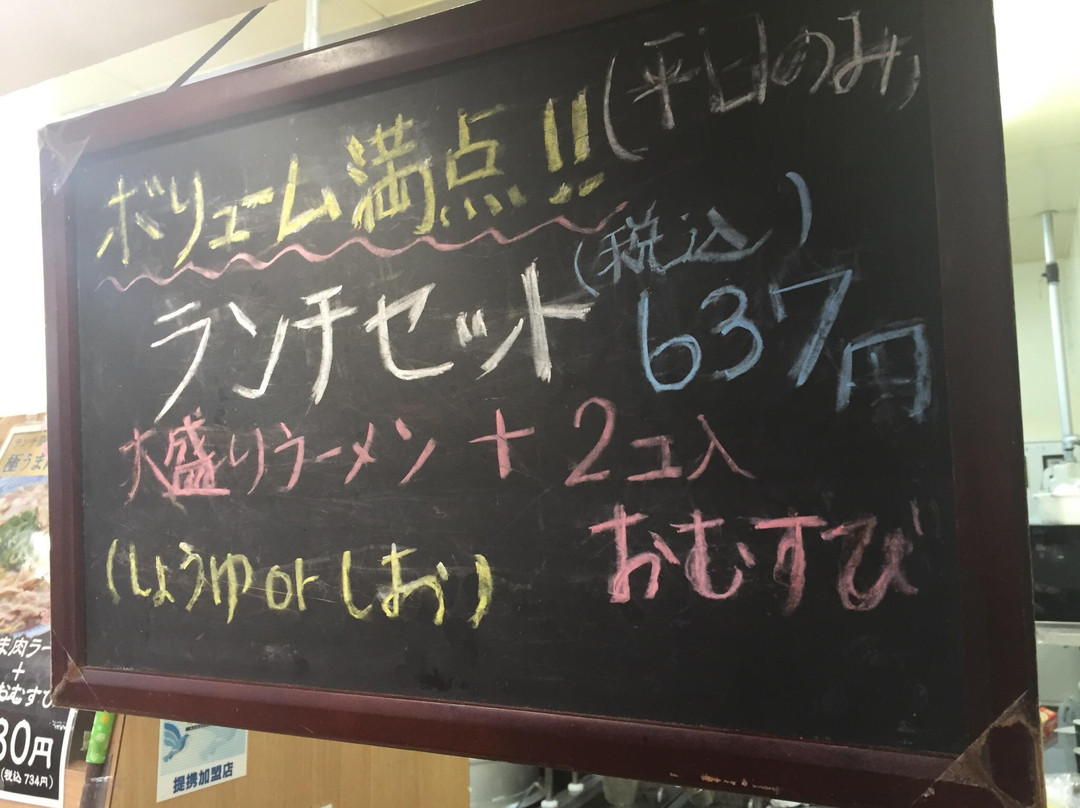 (平日のみ)
ボリューム満点!!
(税込)
ランチセット 637円
大盛りラーメン + 2コ入
おむすび
(しょうゆorしお)
極うま
ま肉ラー
+
おむすび
80円
(税込734円)
提携加盟店